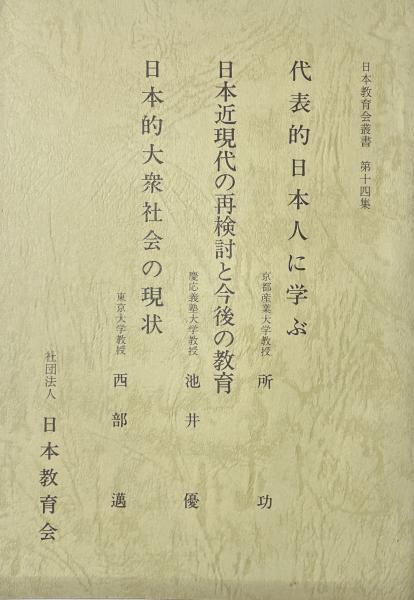 日本教育会叢書 第十四集
代表的日本人に学ぶ
京都産業大学教授 所功
日本近現代の再検討と今後の教育
慶応義塾大学教授 池井優
日本的大衆社会の現状
東京大学教授 西部邁
社団法人 日本教育会